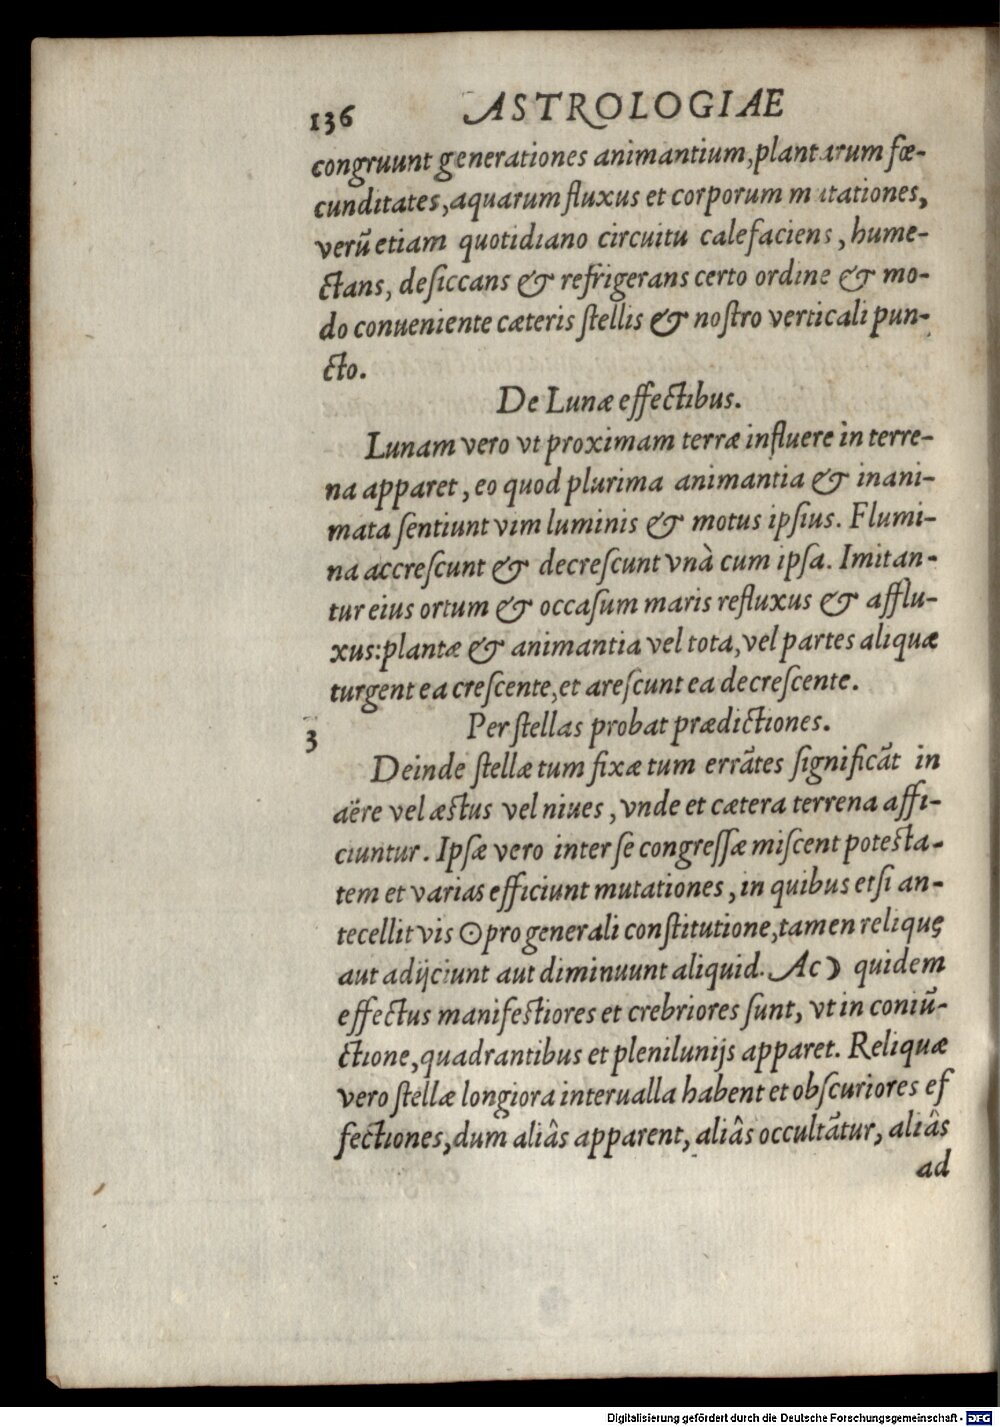 136 ASTROLOGIAE
congruunt generationes animantium, plantarum fœ-
cunditates, aquarum fluxus et corporum mutationes,
verū etiam quotidiano circuitu calefaciens, hume-
ctans, desiccans & refrigerans certo ordine & mo-
do conueniente cæteris stellis & nostro verticali pun-
cto.
De Lunæ effectibus.
Lunam vero vt proximam terræ influere in terre-
na apparet, eo quod plurima animantia & inani-
mata sentiunt vim luminis & motus ipsius. Flumi-
na accrescunt & decrescunt vnà cum ipsa. Imitan-
tur eius ortum & occasum maris refluxus & afflu-
xus: plantæ & animantia vel tota, vel partes aliquæ
turgent ea crescente, et arescunt ea decrescente.
Per stellas probat prædictiones.
3
Deinde stellæ tum fixæ tum errātes significāt in
aëre vel æstus vel niues, vnde et cætera terrena affi-
ciuntur. Ipsæ vero inter se congressæ miscent potesta-
tem et varias efficiunt mutationes, in quibus etsi an-
tecellit vis ☉ pro generali constitutione, tamen reliquę
aut adijciunt aut diminuunt aliquid. Ac ☽ quidem
effectus manifestiores et crebriores sunt, vt in coniū-
ctione, quadrantibus et plenilunijs apparet. Reliquæ
vero stellæ longiora interualla habent et obscuriores ef
fectiones, dum aliâs apparent, aliâs occultātur, aliâs
ad
Digitalisierung gefördert durch die Deutsche Forschungsgemeinschaft - DFG